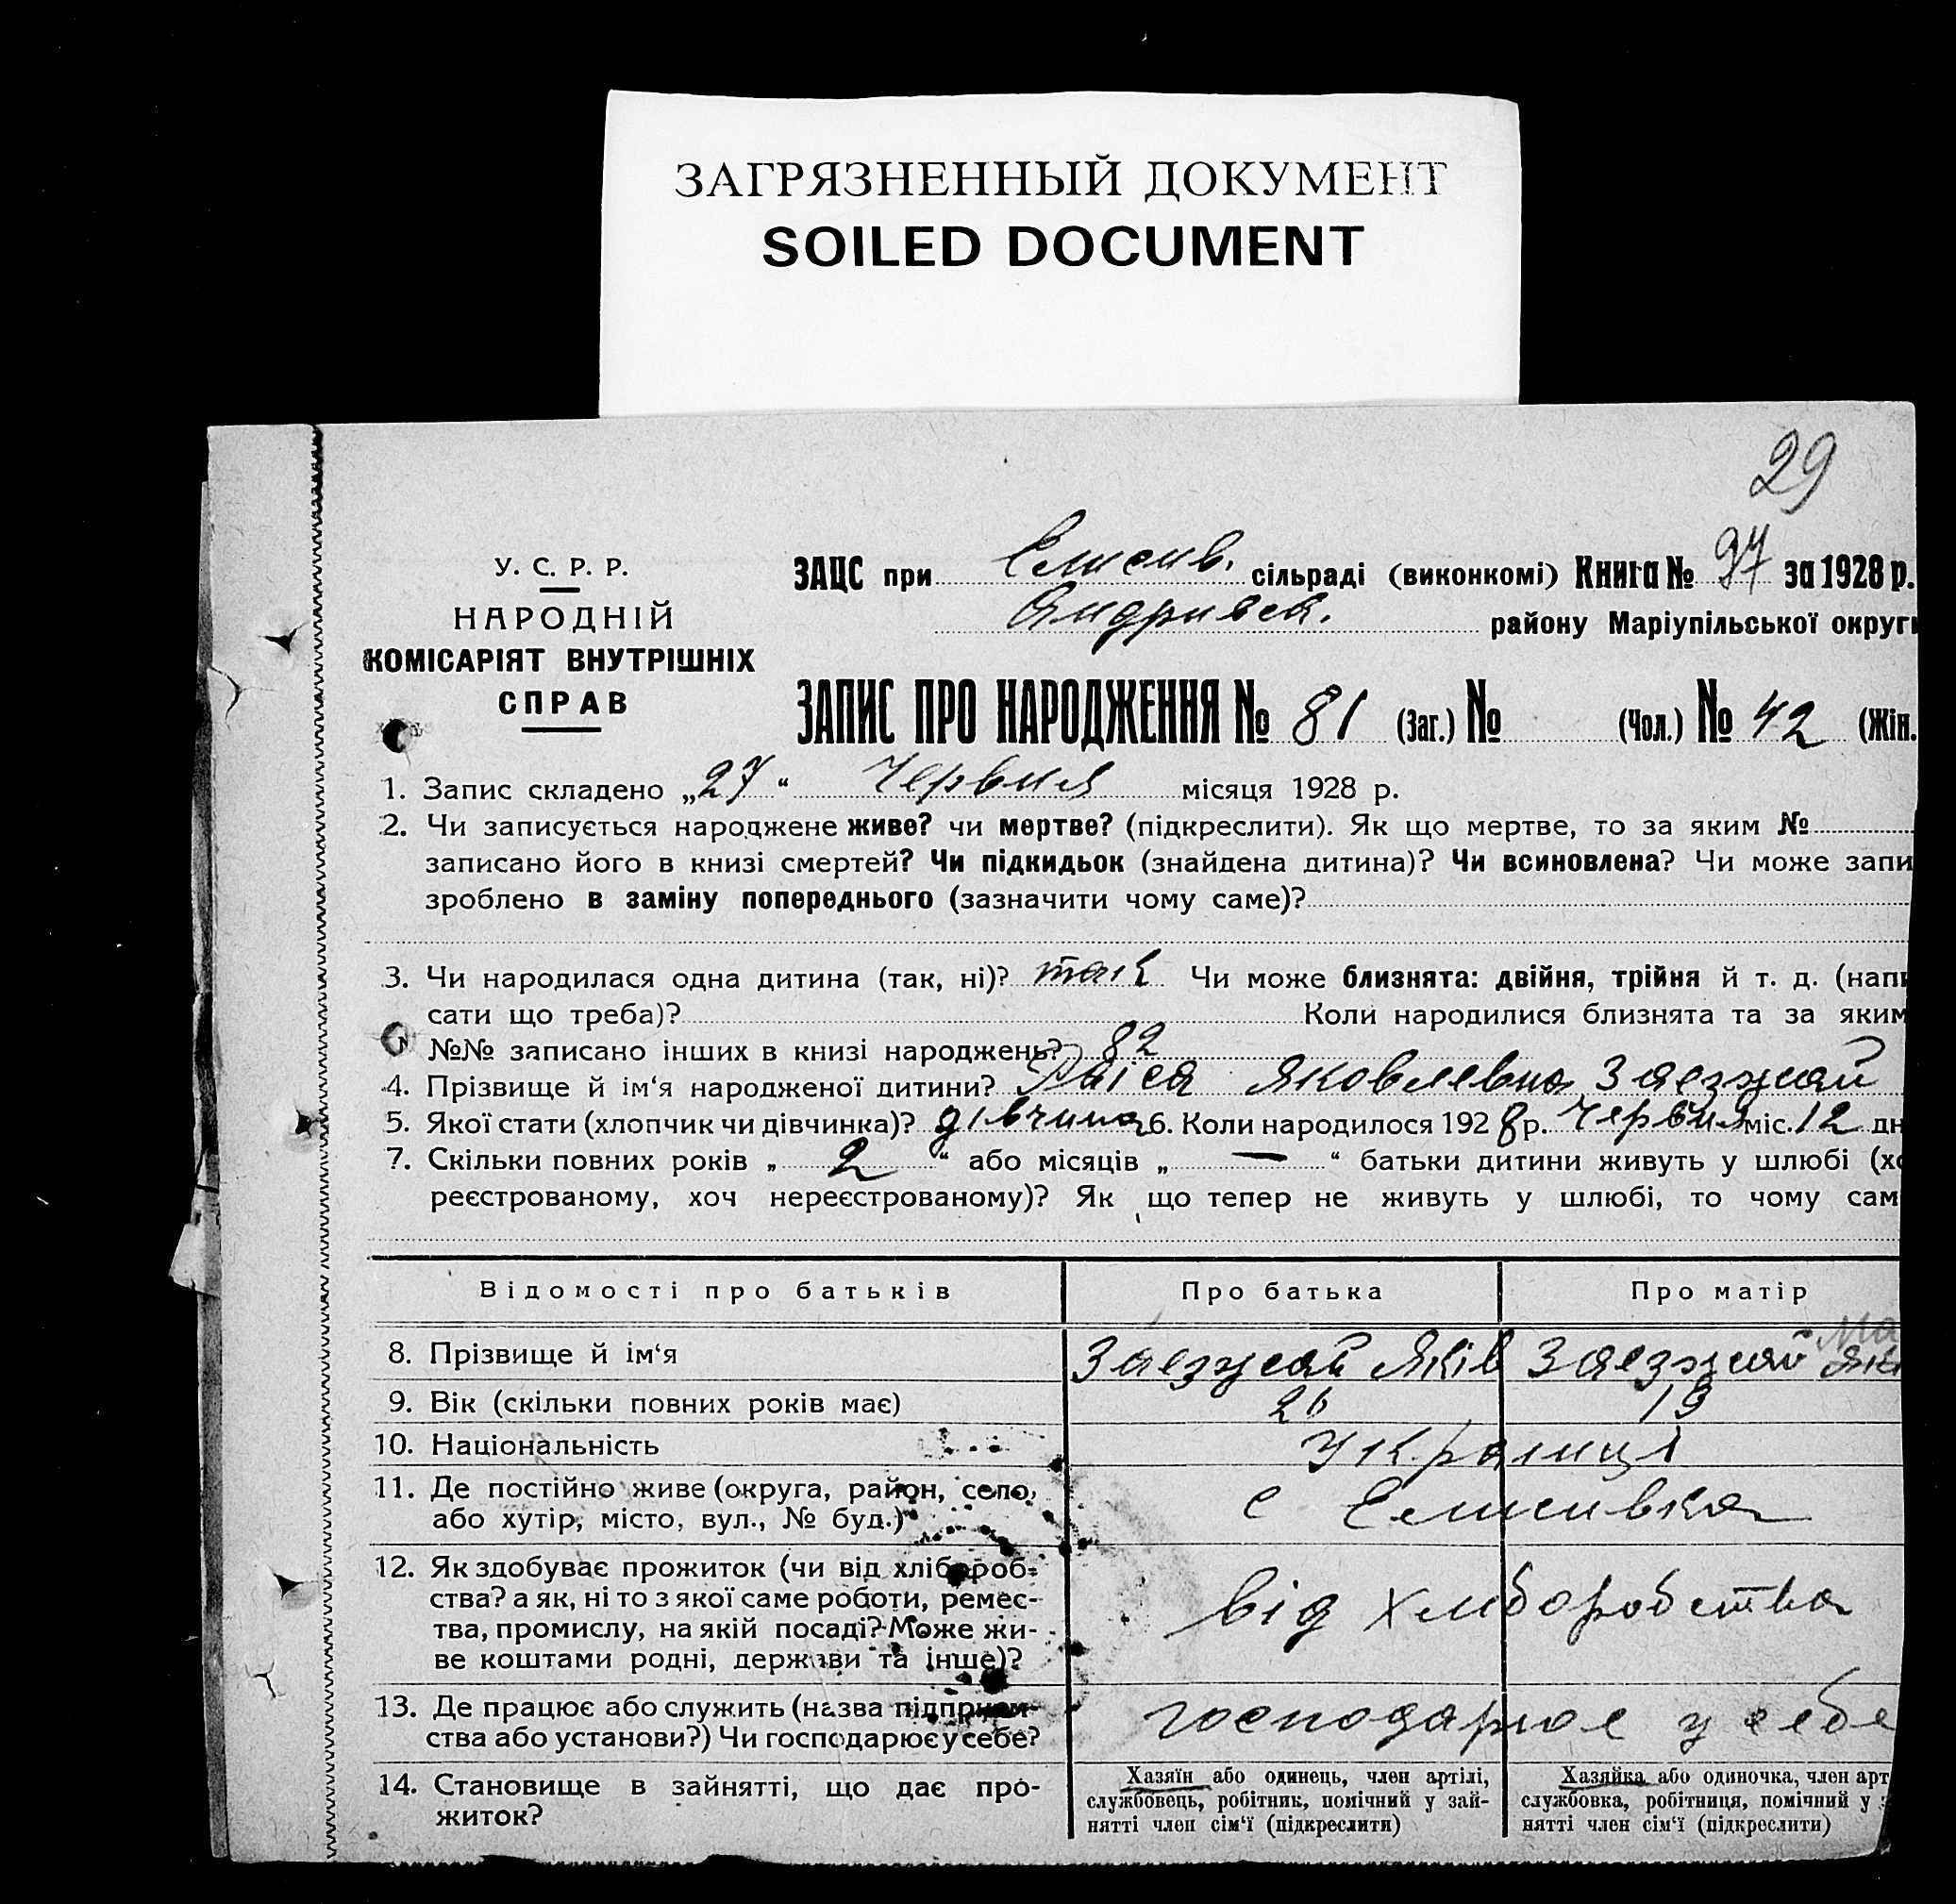 ЗАГРЯЗНЕННЫЙ ДОКУМЕНТ
SOILED DOCUMENT
29
У. С. Р. Р.
НАРОДНІЙ
КОМІСАРІЯТ ВНУТРІШНІХ
СПРАВ
ЗАЦС при Елисив. сільраді (виконкомі) Книга № 97 за 1928 р.
Андриевск. району Маріупільської округи
ЗАПИС ПРО НАРОДЖЕННЯ № 81 (Заг.) № (Чол.) № 42 (Жін.
1. Запис складено „27“ Червня місяця 1928 р.
2. Чи записується народжене живе? чи мертве? (підкреслити). Як що мертве, то за яким №
записано його в книзі смертей? Чи підкидьок (знайдена дитина)? Чи всиновлена? Чи може запи
зроблено в заміну попереднього (зазначити чому саме)?
3. Чи народилася одна дитина (так, ні)? так Чи може близнята: двійня, трійня й т. д. (напи
сати що треба)? Коли народилися близнята та за яким
№№ записано інших в книзі народжень? 82
4. Прізвище й ім‘я народженої дитини? Раіса Яковлевна Заезжай
5. Якої стати (хлопчик чи дівчинка)? дівчина 6. Коли народилося 1928 р. Червня міс. 12 дн
7. Скільки повних років „ 2 “ або місяців „ — “ батьки дитини живуть у шлюбі (хо
реєстрованому, хоч нереєстрованому)? Як що тепер не живуть у шлюбі, то чому сам
Відомості про батьків Про батька Про матір
8. Прізвище й ім‘я Заезжай Яків Заезжай
9. Вік (скільки повних років має) 26 19
10. Національність Украинці
11. Де постійно живе (округа, район, село,
або хутір, місто, вул., № буд.) с Елисивка
12. Як здобуває прожиток (чи від хлібороб-
ства? а як, ні то з якої саме роботи, ремес-
тва, промислу, на якій посаді? Може жи-
ве коштами родні, держави та інше)?
від хлиборобства
13. Де працює або служить (назва підприєм-
ства або установи?) Чи господарює у себе?
господарює у себе
14. Становище в зайнятті, що дає про-
житок?
Хазяїн або одинець, член артілі,
службовець, робітник, помічний у зай-
нятті член сім‘ї (підкреслити)
Хазяйка або одиночка, член арт
службовка, робітниця, помічний у з
нятті член сім‘ї (підкреслити)